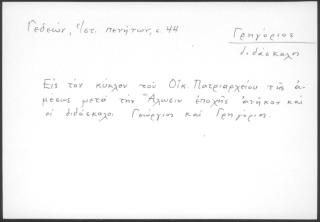 Γεδεών, Χ/στ. πενήτων, σ. 44
Γρηγόριος
διδάσκαλος
Εἰς τὸν κύκλον τοῦ Οἰκ. Πατριαρχείου τῆς ἀ-
μέσως μετὰ τὴν Ἅλωσιν ἐποχῆς ἀνῆκον καὶ
οἱ διδάσκαλοι Γεώργιος καὶ Γρηγόριος.